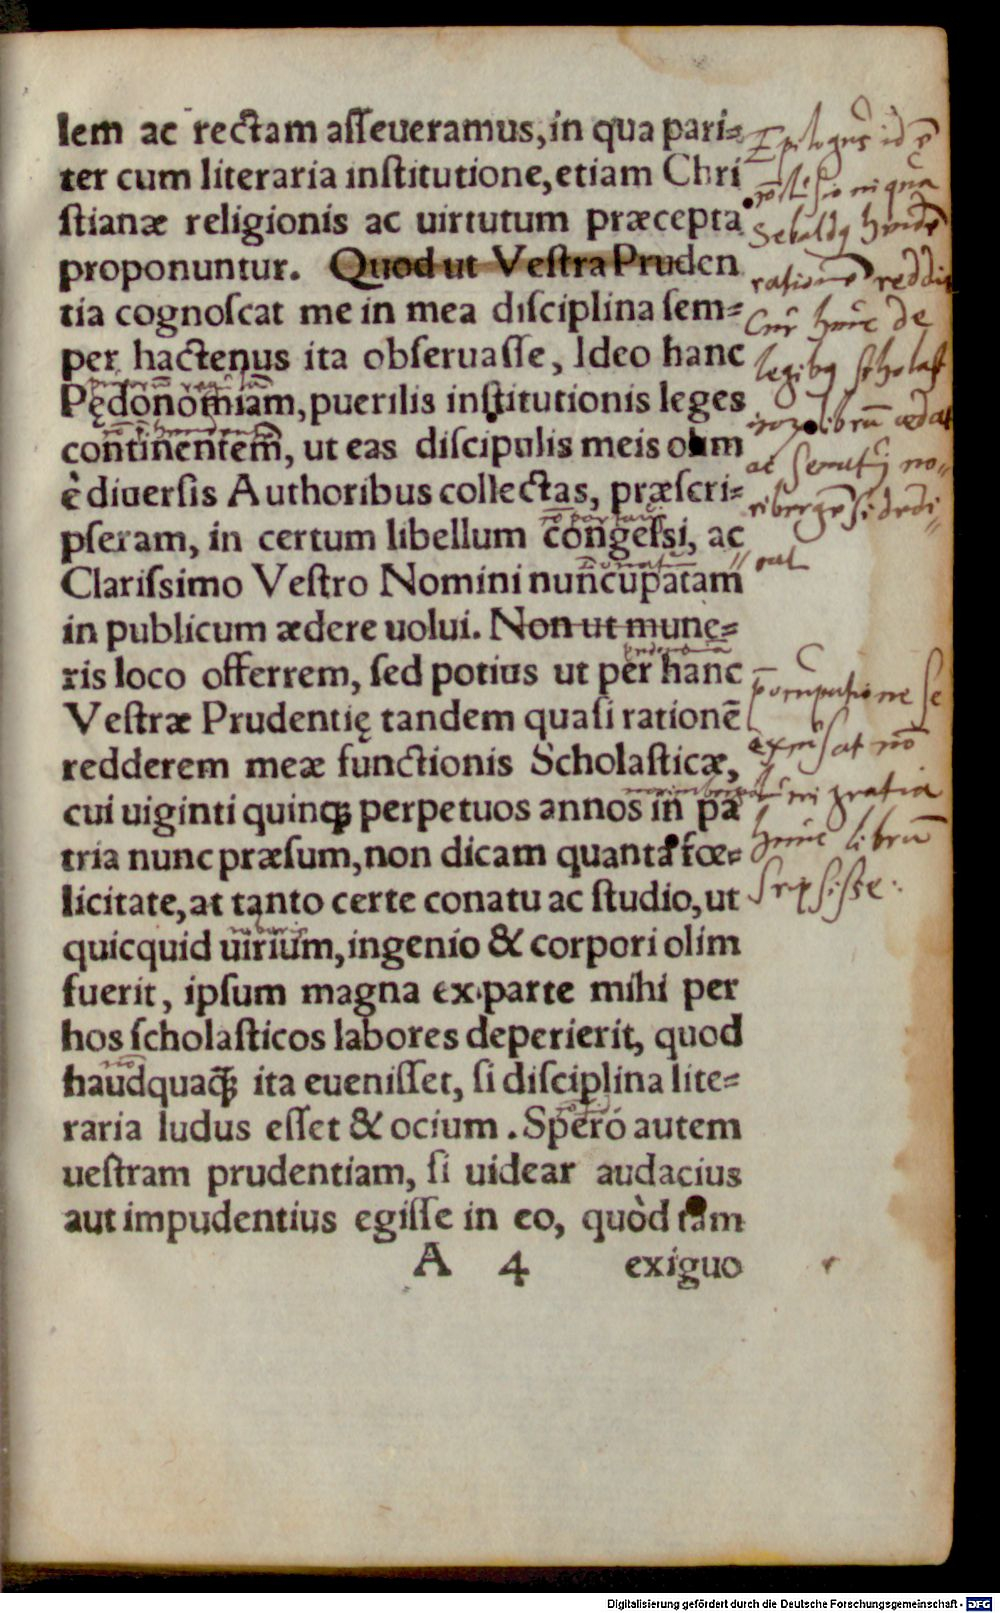 lem ac rectam aſſeueramus, in qua pari-
ter cum literaria inſtitutione, etiam Chri
ſtianæ religionis ac uirtutum præcepta
proponuntur. Quod ut Veſtra Pruden
tia cognoſcat me in mea diſciplina ſem-
per hactenus ita obſeruaſſe, Ideo hanc
Pędonomiam, puerilis inſtitutionis leges
continentem, ut eas diſcipulis meis olim
è diuerſis Authoribus collectas, præſcri-
pſeram, in certum libellum congeſſi, ac
Clariſſimo Veſtro Nomini nuncupatam
in publicum ædere uolui. Non ut mune-
ris loco offerrem, ſed potius ut per hanc
Veſtræ Prudentię tandem quaſi rationē
redderem meæ functionis Scholaſticæ,
cui uiginti quinqꝫ perpetuos annos in pa
tria nunc præſum, non dicam quanta fœ-
licitate, at tanto certe conatu ac ſtudio, ut
quicquid uirium, ingenio & corpori olim
fuerit, ipſum magna ex parte mihi per
hos ſcholaſticos labores deperierit, quod
haudquaqꝫ ita eueniſſet, ſi diſciplina lite-
raria ludus eſſet & ocium. Spero autem
ueſtram prudentiam, ſi uidear audacius
aut impudentius egiſſe in eo, quòd tam
A 4 exiguo
Epilogus id ē
in qua
Sebaldꝯ
rationē reddit
Cur hunc de
legibꝯ ſcholaſt
librū ædat
ac no-
gratia
hunc librū
Digitalisierung gefördert durch die Deutsche Forschungsgemeinschaft - DFG